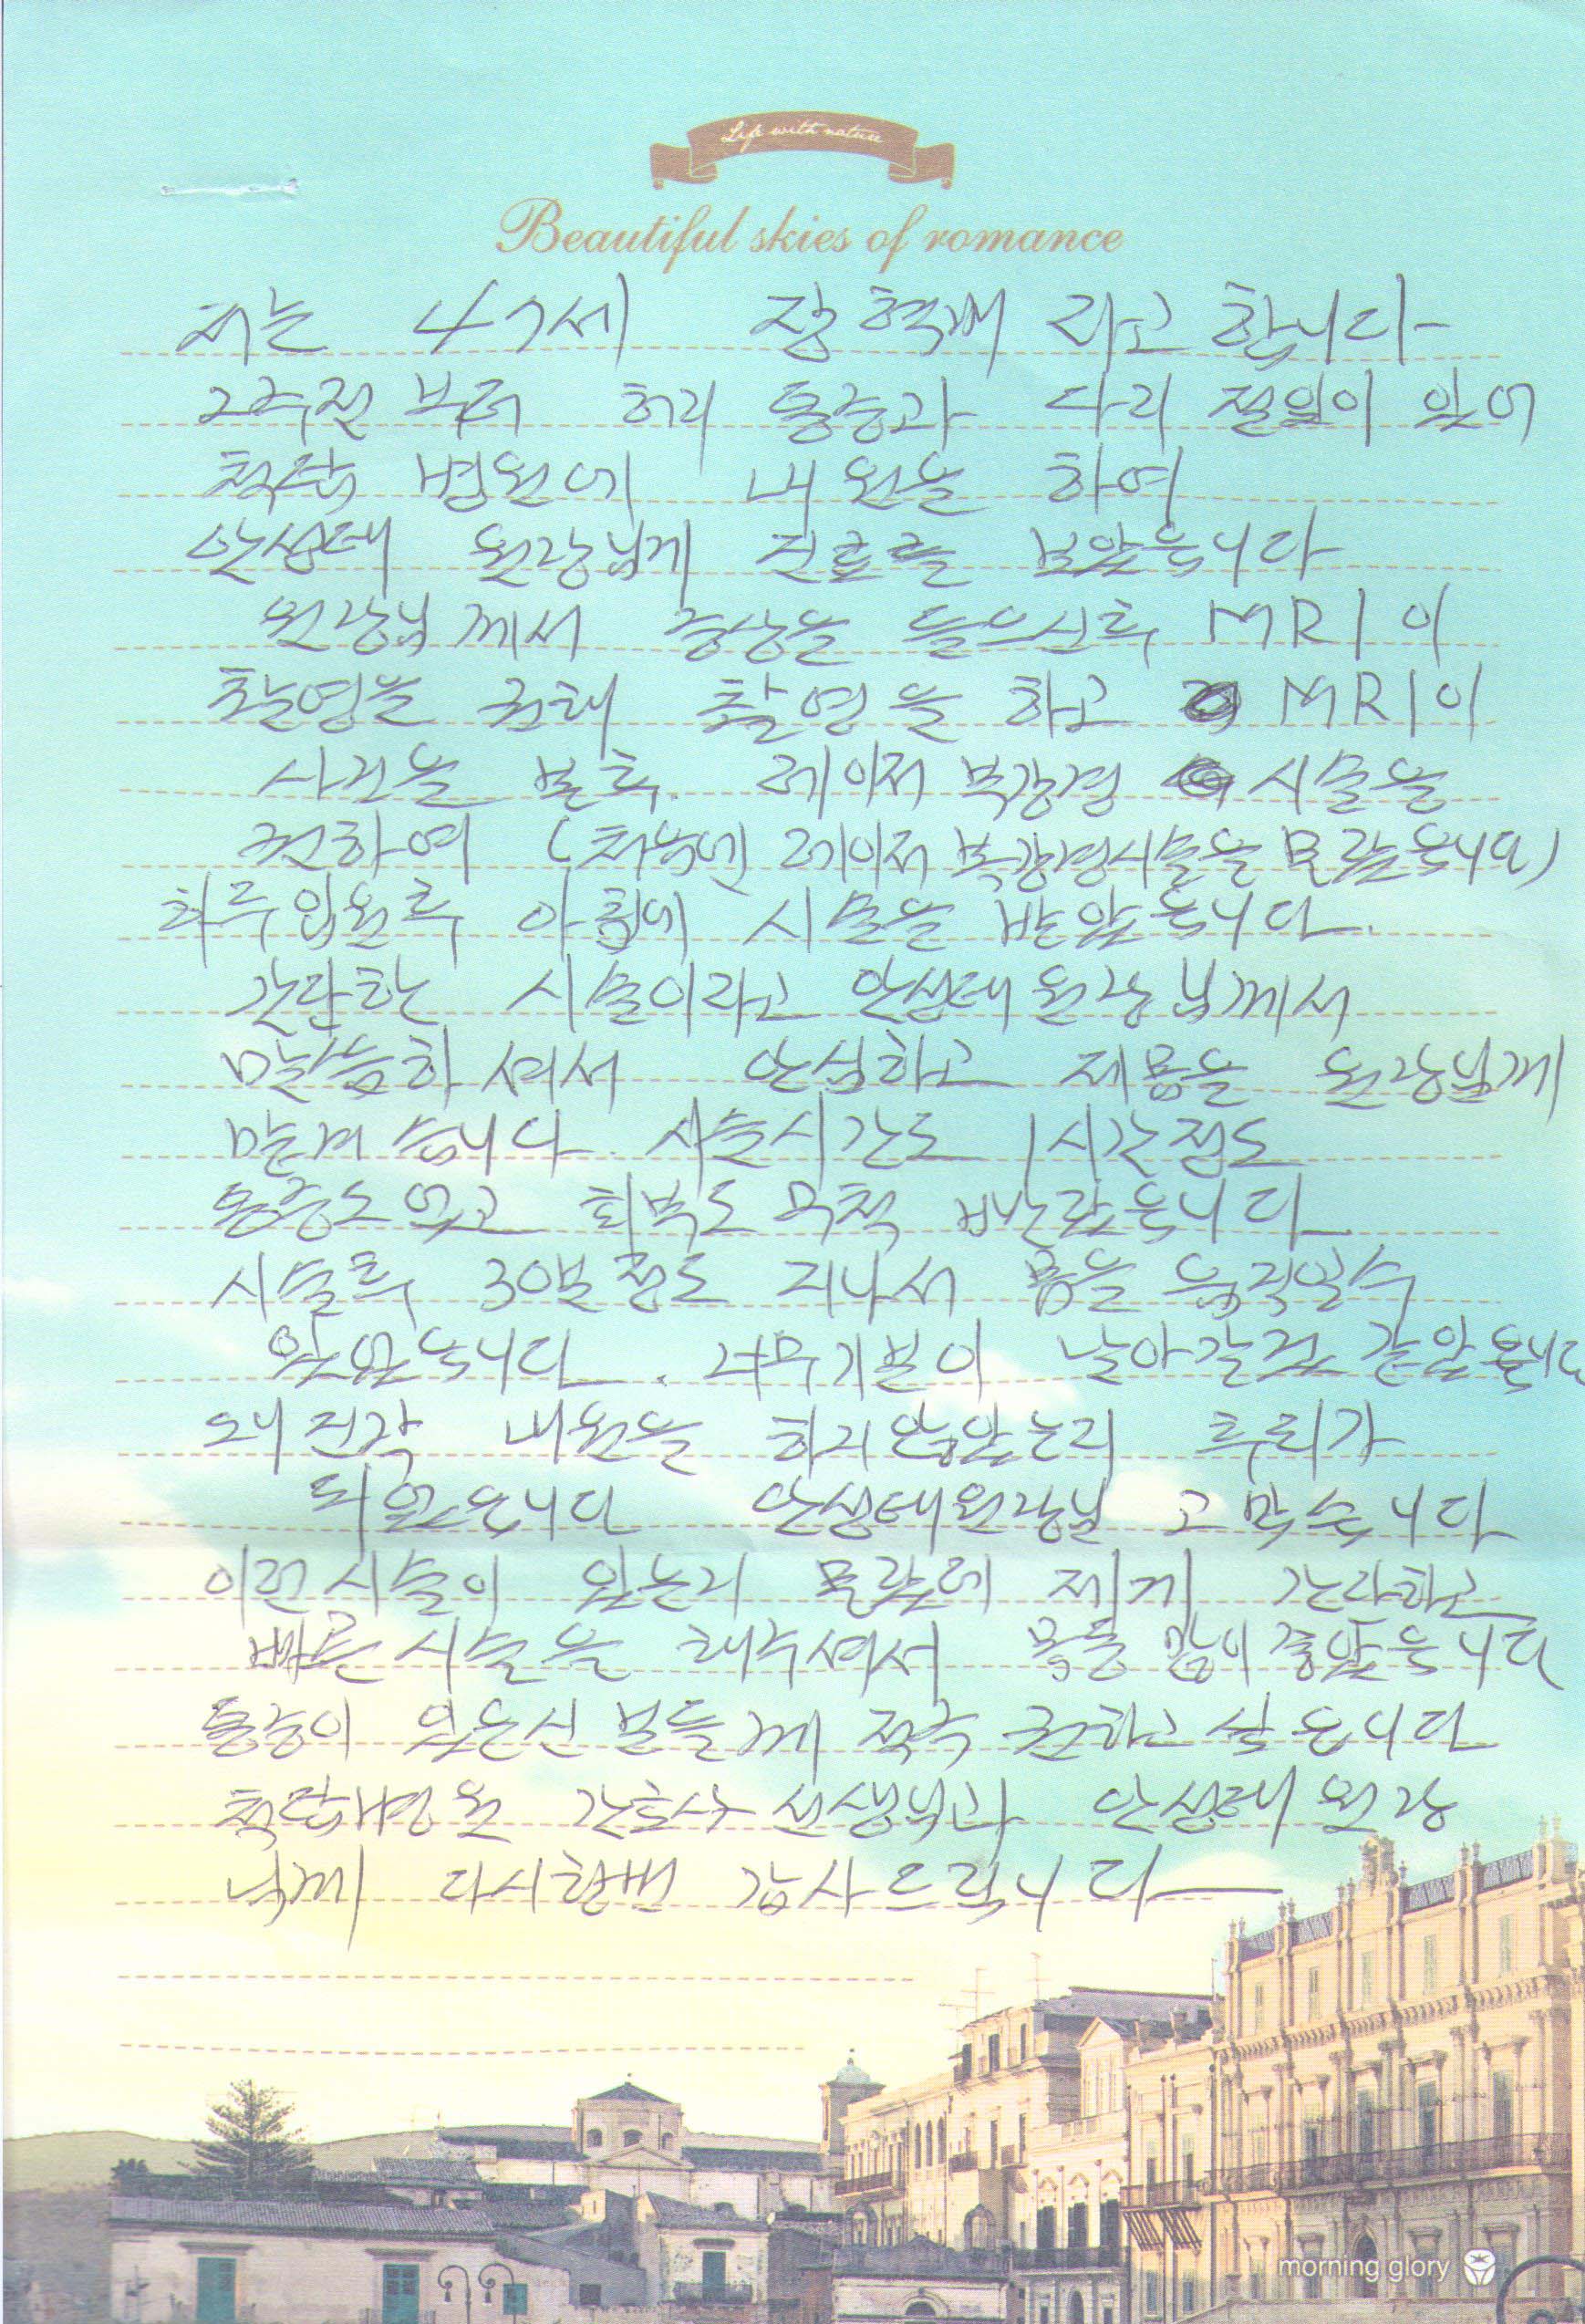 Life with nature
Beautiful skies of romance
저는 47세 장혁배 라고 합니다
2주전 부터 허리 통증과 다리 절임이 있어
척탑 병원에 내원을 하여
안성태 원장님께 진료를 보았읍니다
원장님께서 증상을 들으신후 MRI 이
촬영을 권해 촬영을 하고 MRI 이
사진을 본후. 레이저 복강경 시술을
권하여 (처음엔 레이저 복강경시술을 몰랐읍니다)
하루 입원후 아침에 시술을 받았읍니다.
간단한 시술이라고 안성태 원장님께서
말씀하셔서 안심하고 제몸을 원장님께
맡겨습니다. 시술시간도 1시간정도
통증도 없고 회복도 무척 빨랐읍니다
시술후 30분 정도 지나서 몸을 움직일수
있었읍니다. 너무기분이 날아갈것 같았읍니다
왜 진작 내원을 하지 않았는지 후회가
되었읍니다 안성태원장님 고맙습니다
이런시술이 있는지 몰랐는데 제게 간단하고
빠른 시술을 해주셔서 몸이 좋았읍니다
통증이 있으신 분들께 적극 권하고 싶읍니다
척탑병원 간호사 선생님과 안성태 원장
님께 다시한번 감사드립니다
morning glory